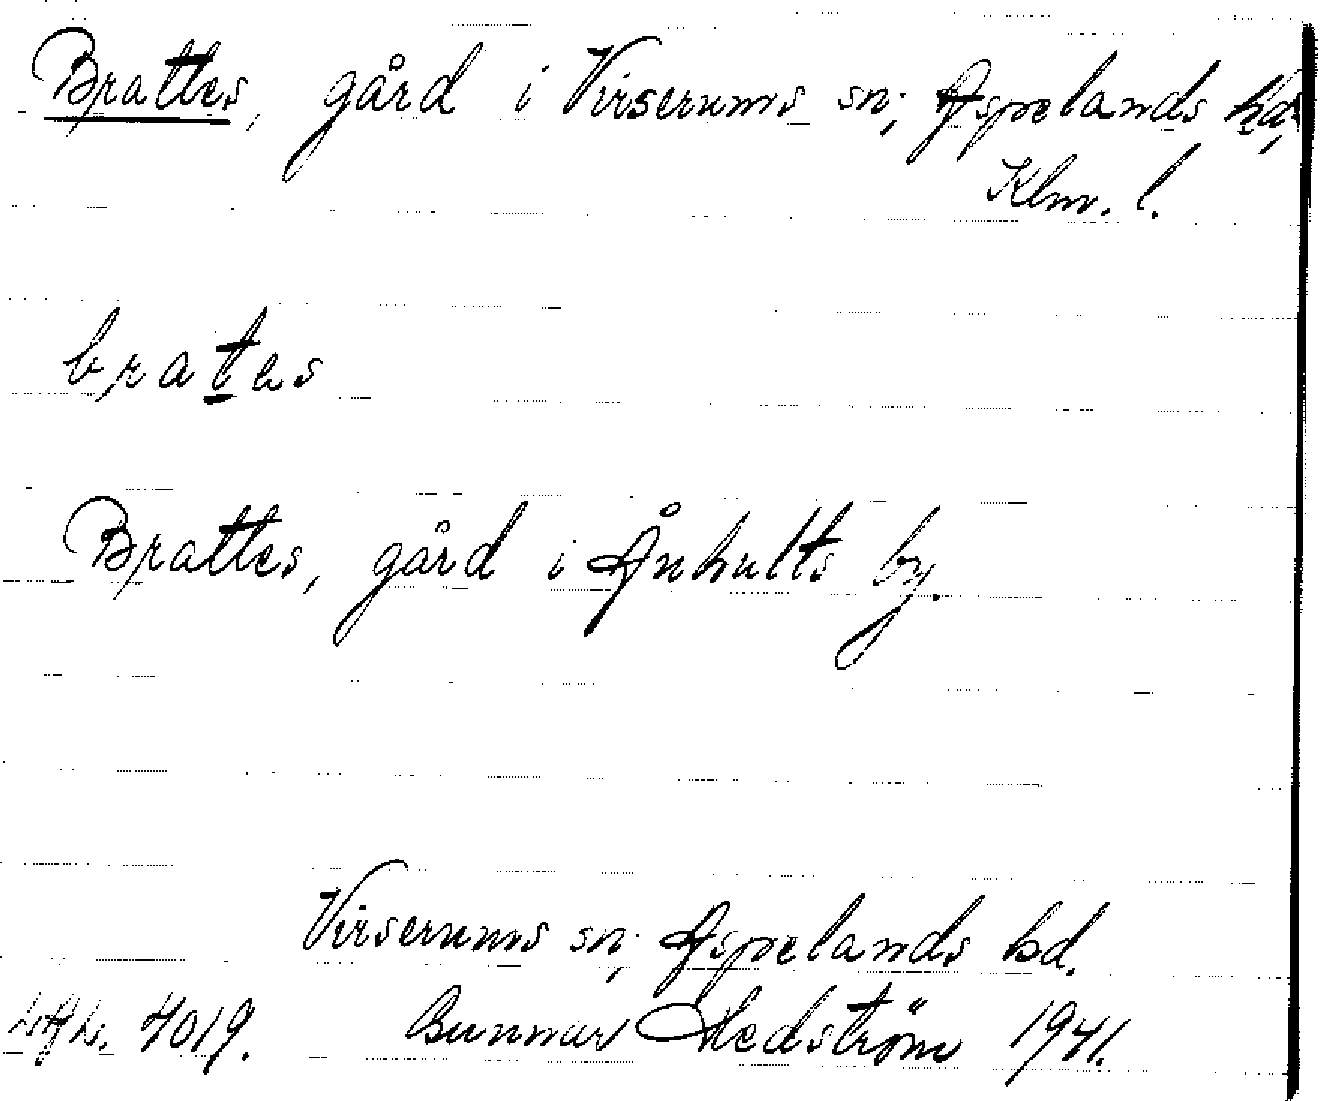 Brattes, gård i Virserums sn, Aspelands hd,
Klm. l.
brates
Brattes, gård i Ånhults by.
Virserums sn, Aspelands hd.
4019. Gunnar Hedström 1941.